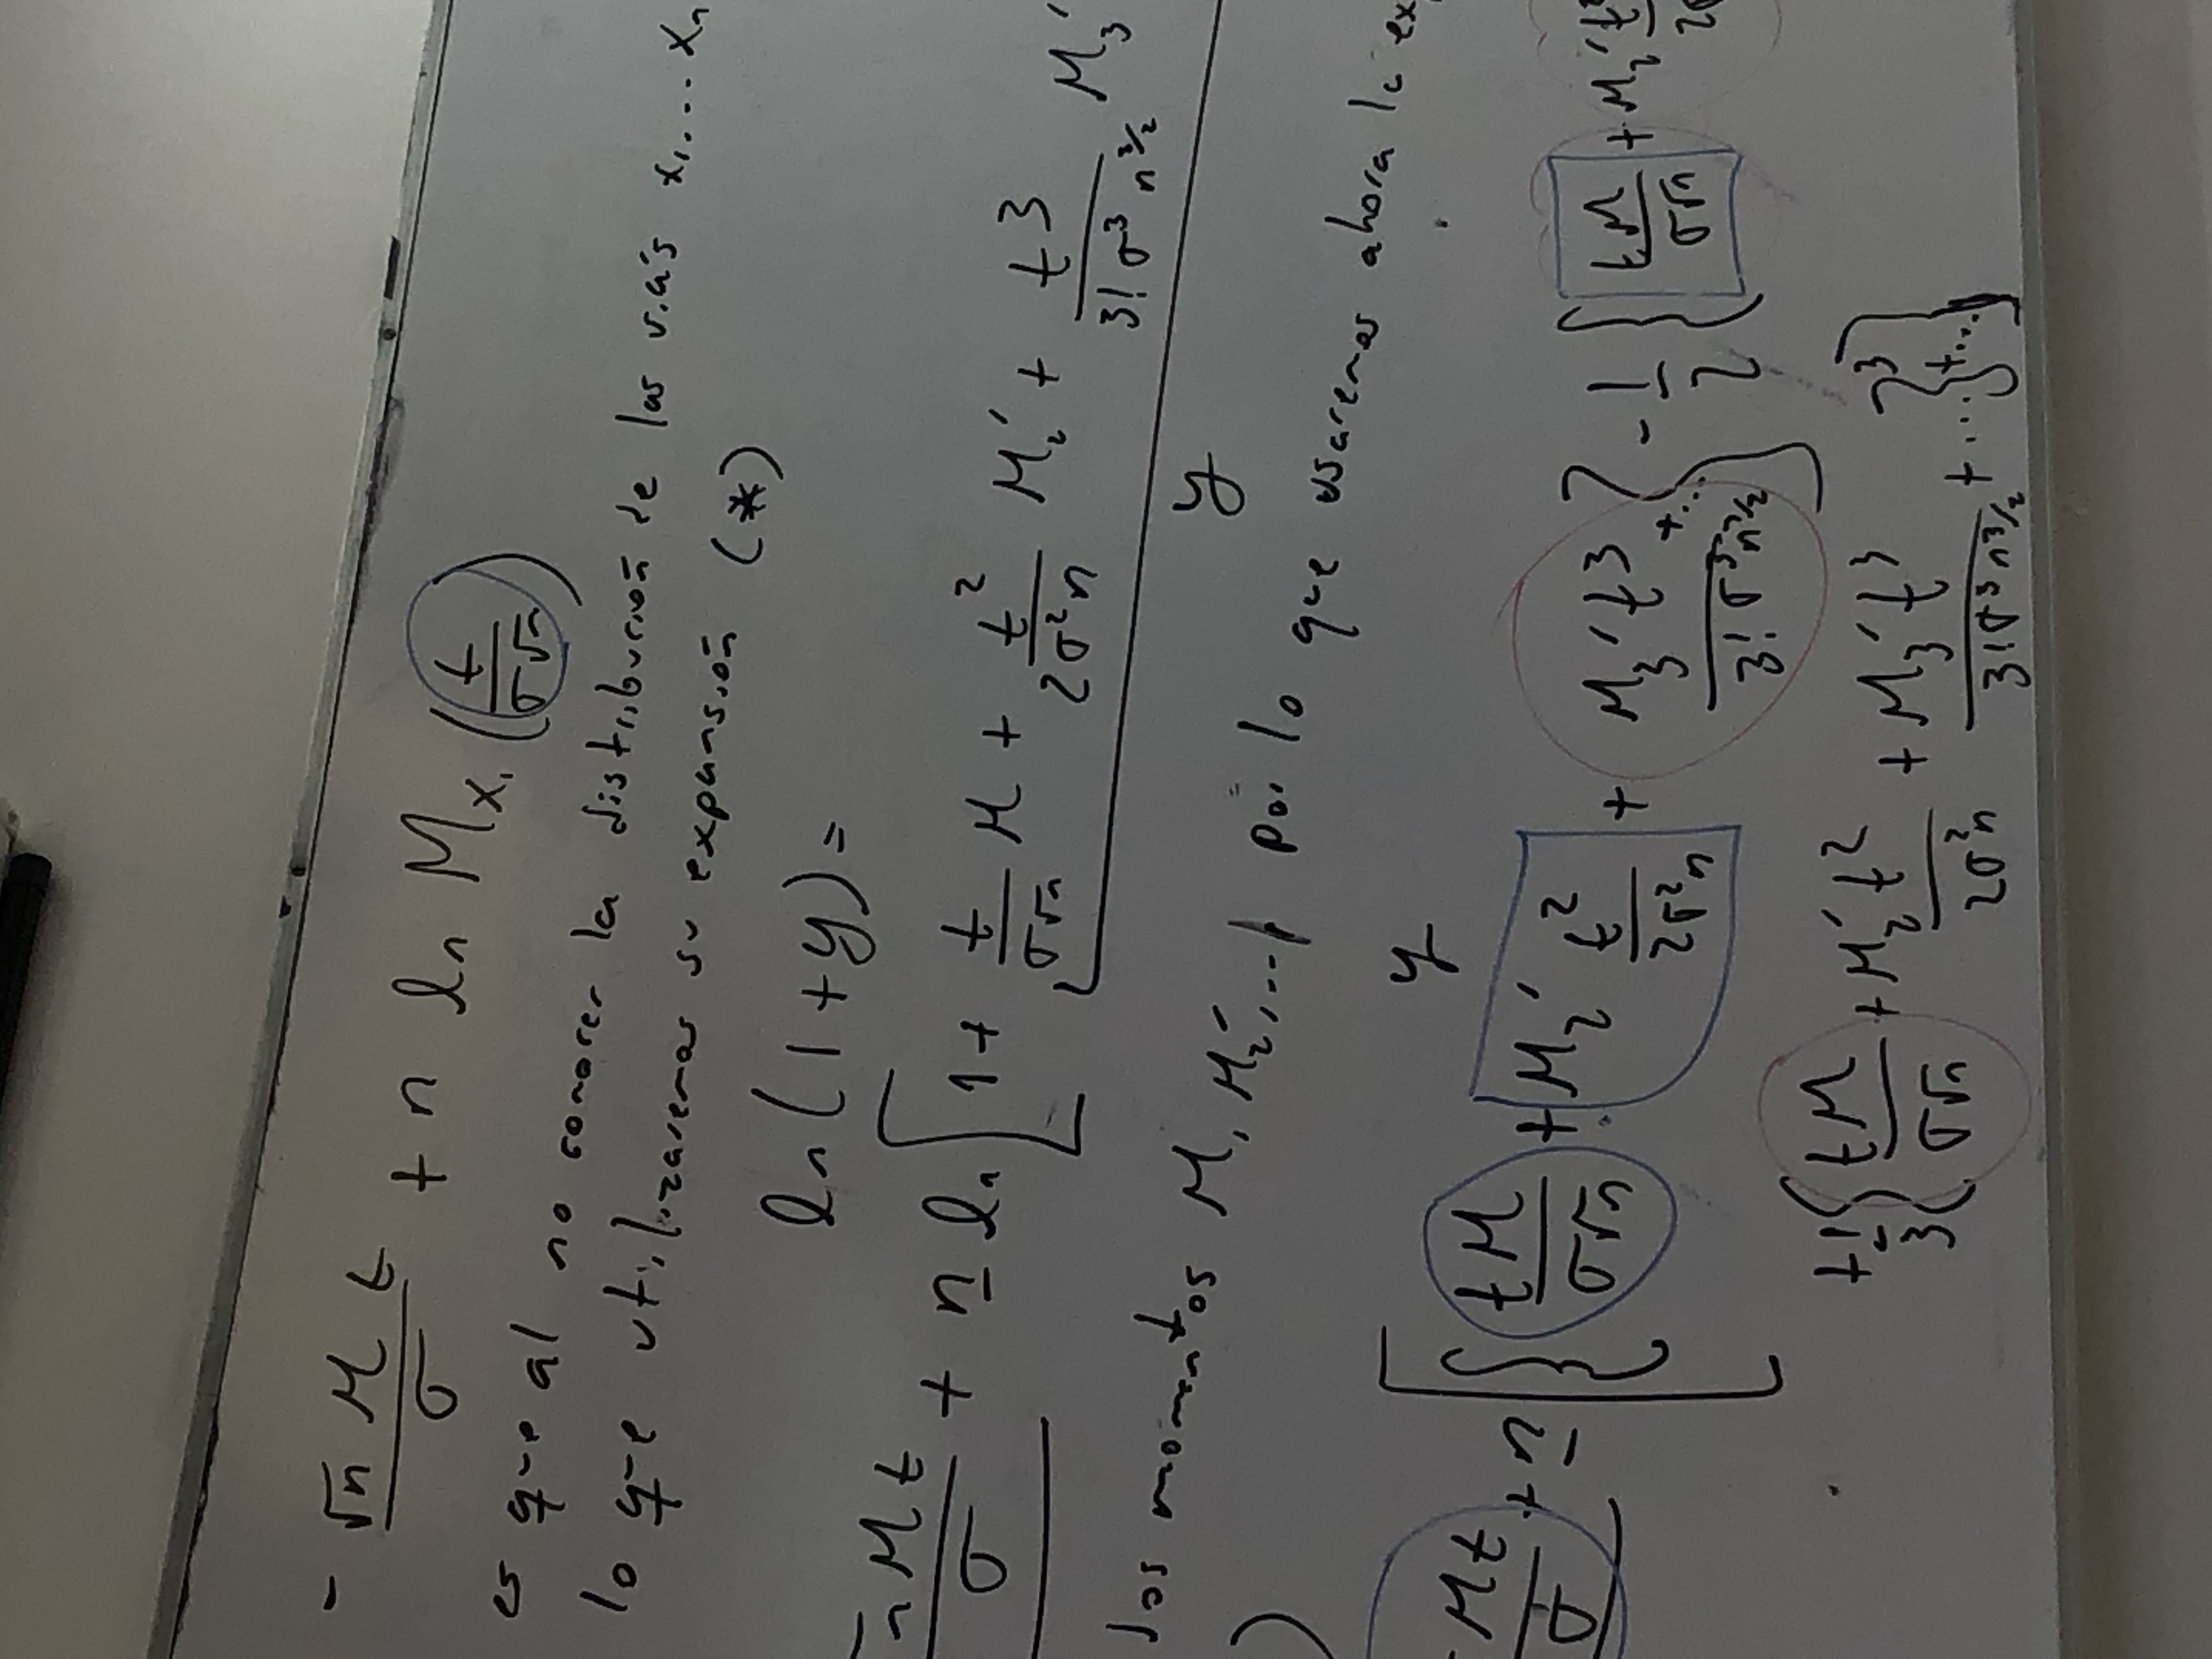 - √n μ t / σ + n ln M x₁ ( t / σ√n )
es que al no conocer la distribución de las v.a's x₁, ... xₙ
lo que utilizaremos su expansión (*)
ln(1+y) =
n μ t / σ + n ln [ 1 + t / σ√n μ + t² / 2σ²n μ₂' + t³ / 3! σ³ n^3/2 μ₃'
y
los momentos μ, μ₂', ..., por lo que usaremos ahora la
y
μt / σ + n [ { tμ / σ√n + μ₂' t² / 2σ²n + μ₃' t³ / 3! σ³ n^3/2 + ... } - 1/2 { tμ / σ√n + μ₂' t²
+ 1/3 ( tμ / σ√n + μ₂' t² / 2σ²n + μ₃' t³ / 3! σ³ n^3/2 + ... }³ + ... }